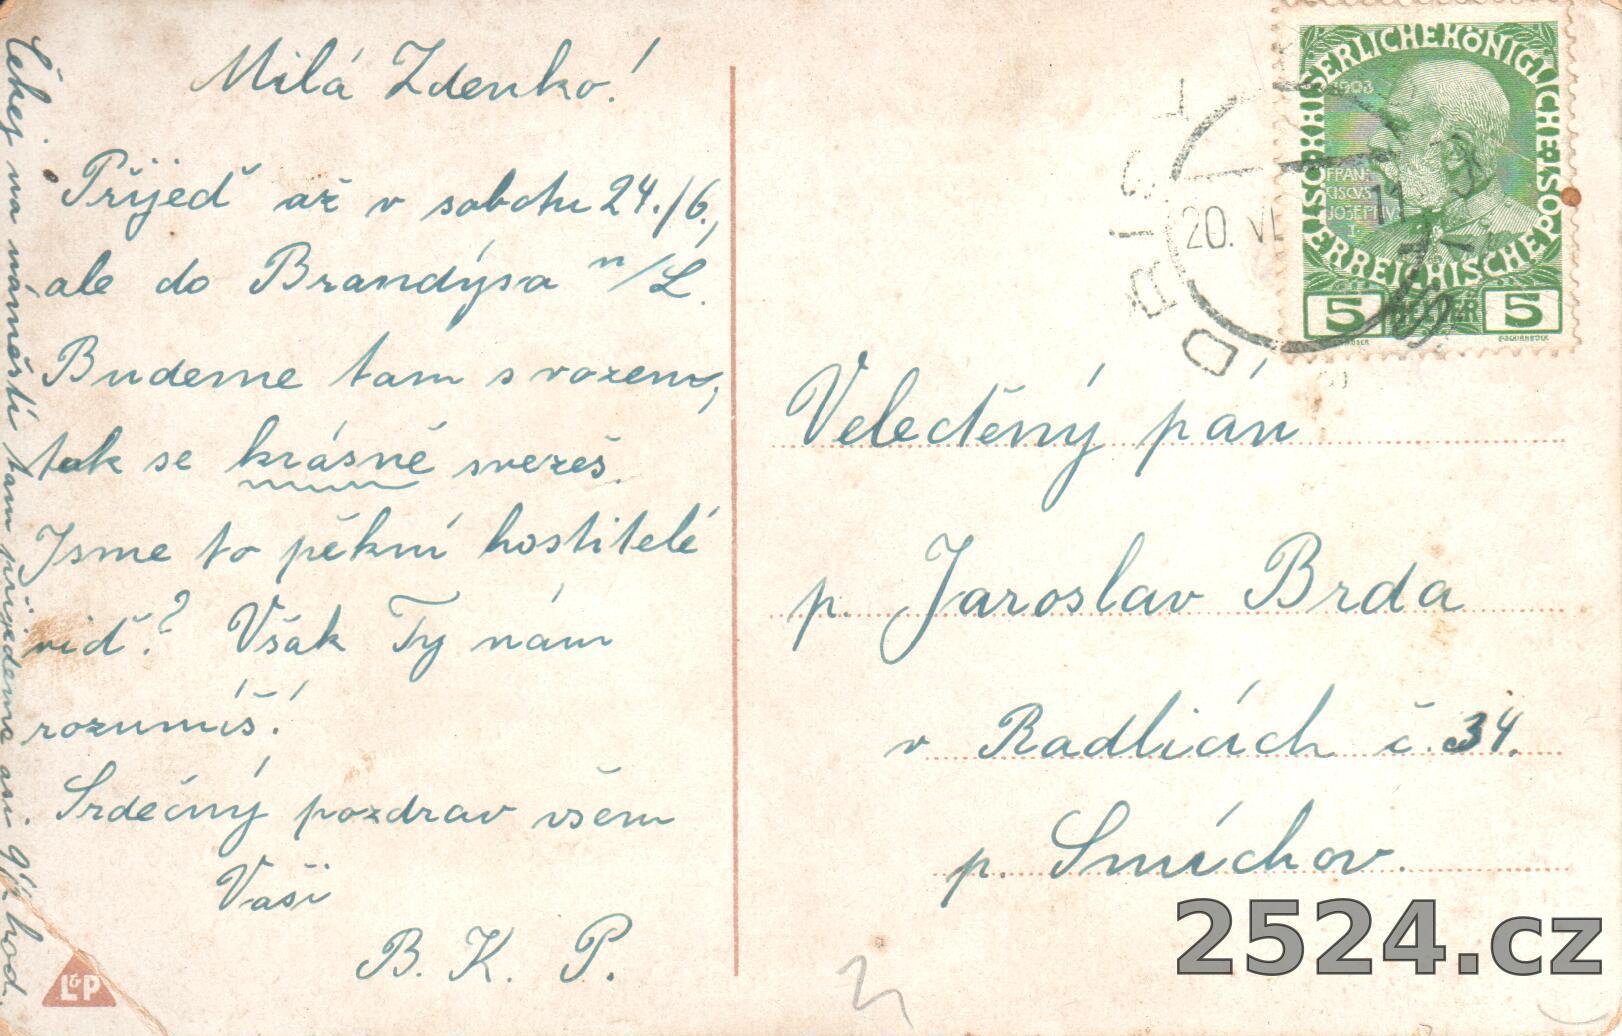 Milá Zdenko!
Přijeď až v sobotu 24./6.,
ale do Brandýsa n/L.
Budeme tam s vozem,
tak se krásně svezeš.
Jsme to pěkní hostitelé
viď? Však Ty nám
rozumíš!
Srdečný pozdrav všem
Vaši
B. K. P.
Čekej na náměstí tam přijedeme asi v hod.
L&P
KAISERLICHEKÖNIGLICHE
ÖSTERREICHISCHE POST
1908
FRAN
CISCVS
JOSEPHVS
I
5 HELLER 5
DŘÍSY
20. VI. 11
Velectěný pán
p. Jaroslav Brda
v Radlicích č. 34.
p. Smíchov.
2524.cz